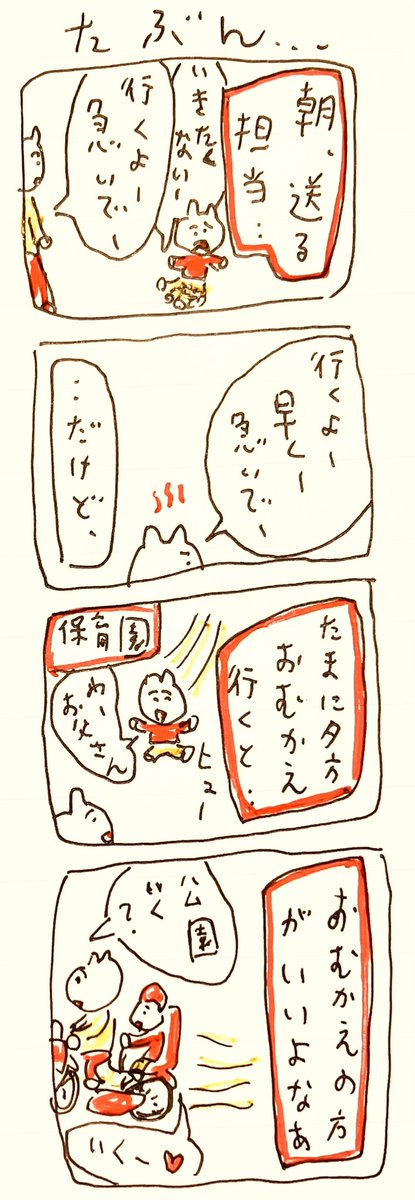 たぶん...
朝、送る
担当…
いきたく
ない〜
行くよー
急いでー
行くよー
早くー
急いでー
…だけど、
たまに夕方
おむかえ
行くと…
ヒュー
保育園
わー
お父さん
おむかえの方
がいいよなぁ
公園
いく
?
いくー♥